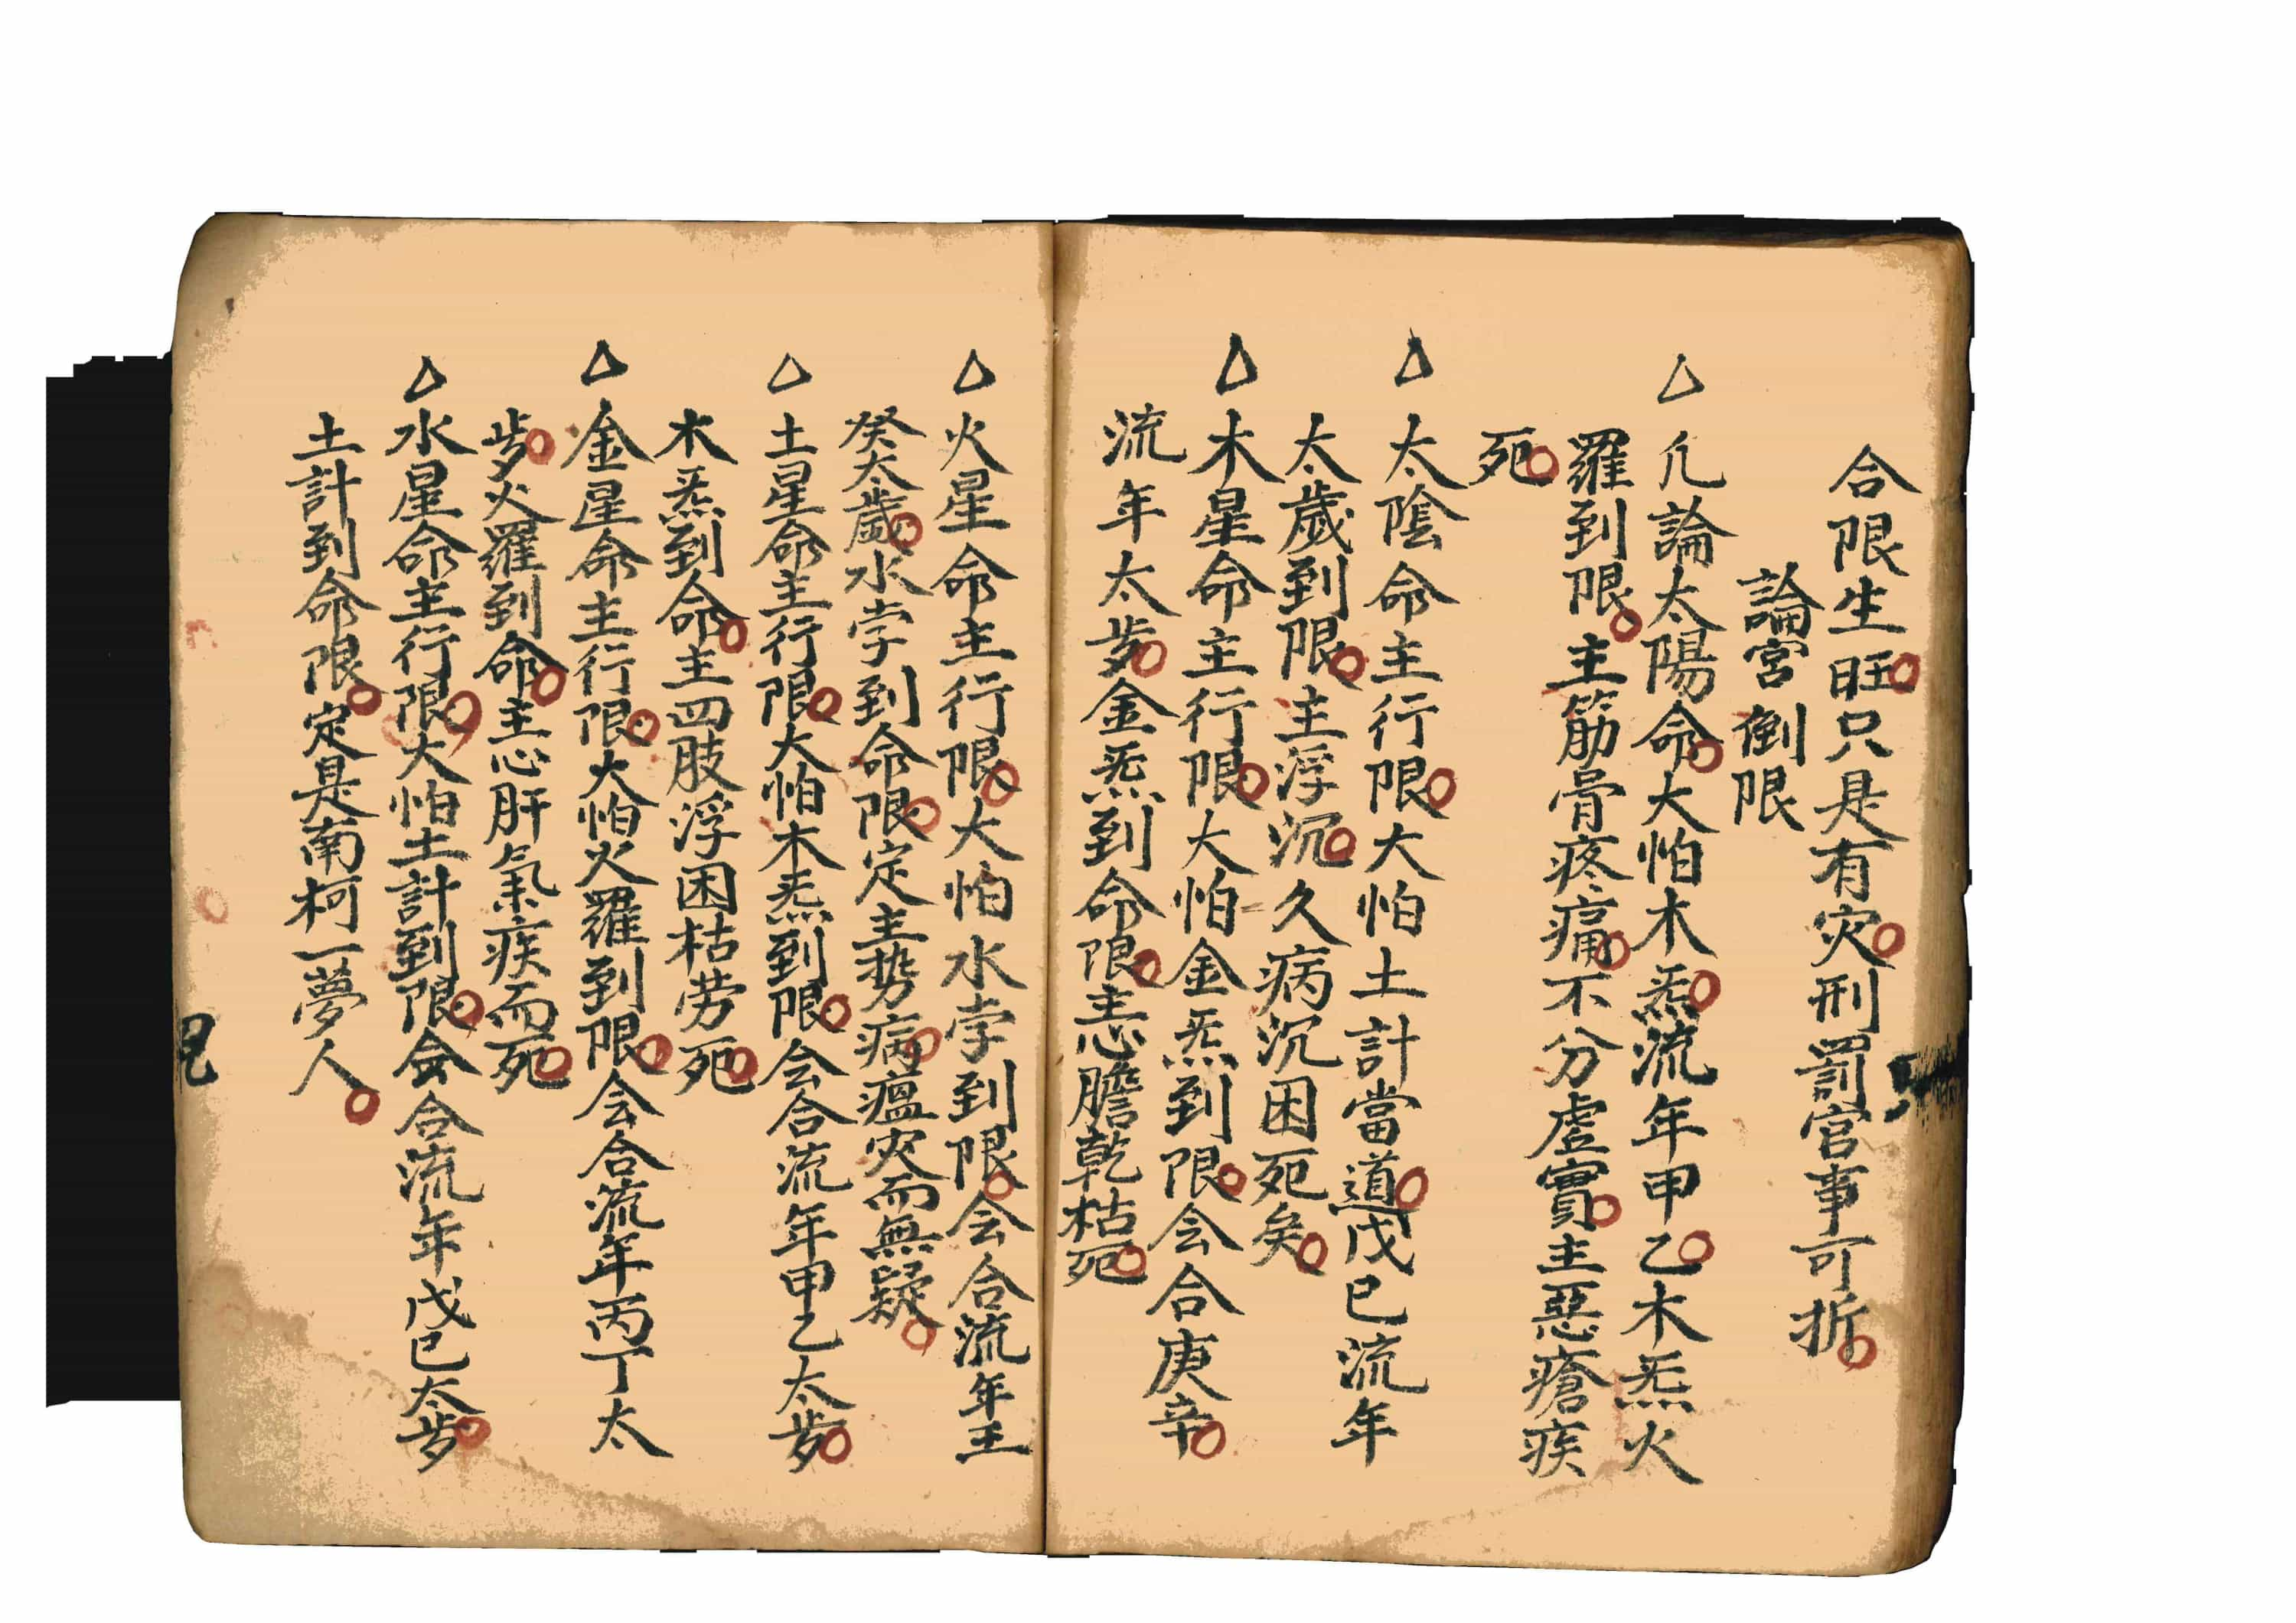 合限生旺只是有灾刑罰官事可折
論宮倒限
△凢論太陽命大怕木炁流年甲乙木炁火
羅到限主筋骨疼痛不分虚實主惡瘡疾
死
△太陰命主行限大怕土計當道戊巳流年
太歲到限主浮沉久病沉困死矣
△木星命主行限大怕金炁到限会合庚辛
流年太歩金炁到命限恚膽乾枯死
△火星命主行限大怕水孛到限会合流年王
癸太歲水孛到命限定主势病瘟灾而無疑
△土星命主行限大怕木炁到限会合流年甲乙太歩
木炁到命主四肢浮困枯劳死
△金星命主行限大怕火羅到限会合流年丙丁太
歩火羅到命主心肝氣疾而死
△水星命主行限大怕土計到限会合流年戊巳太歩
土計到命限定是南柯一夢人